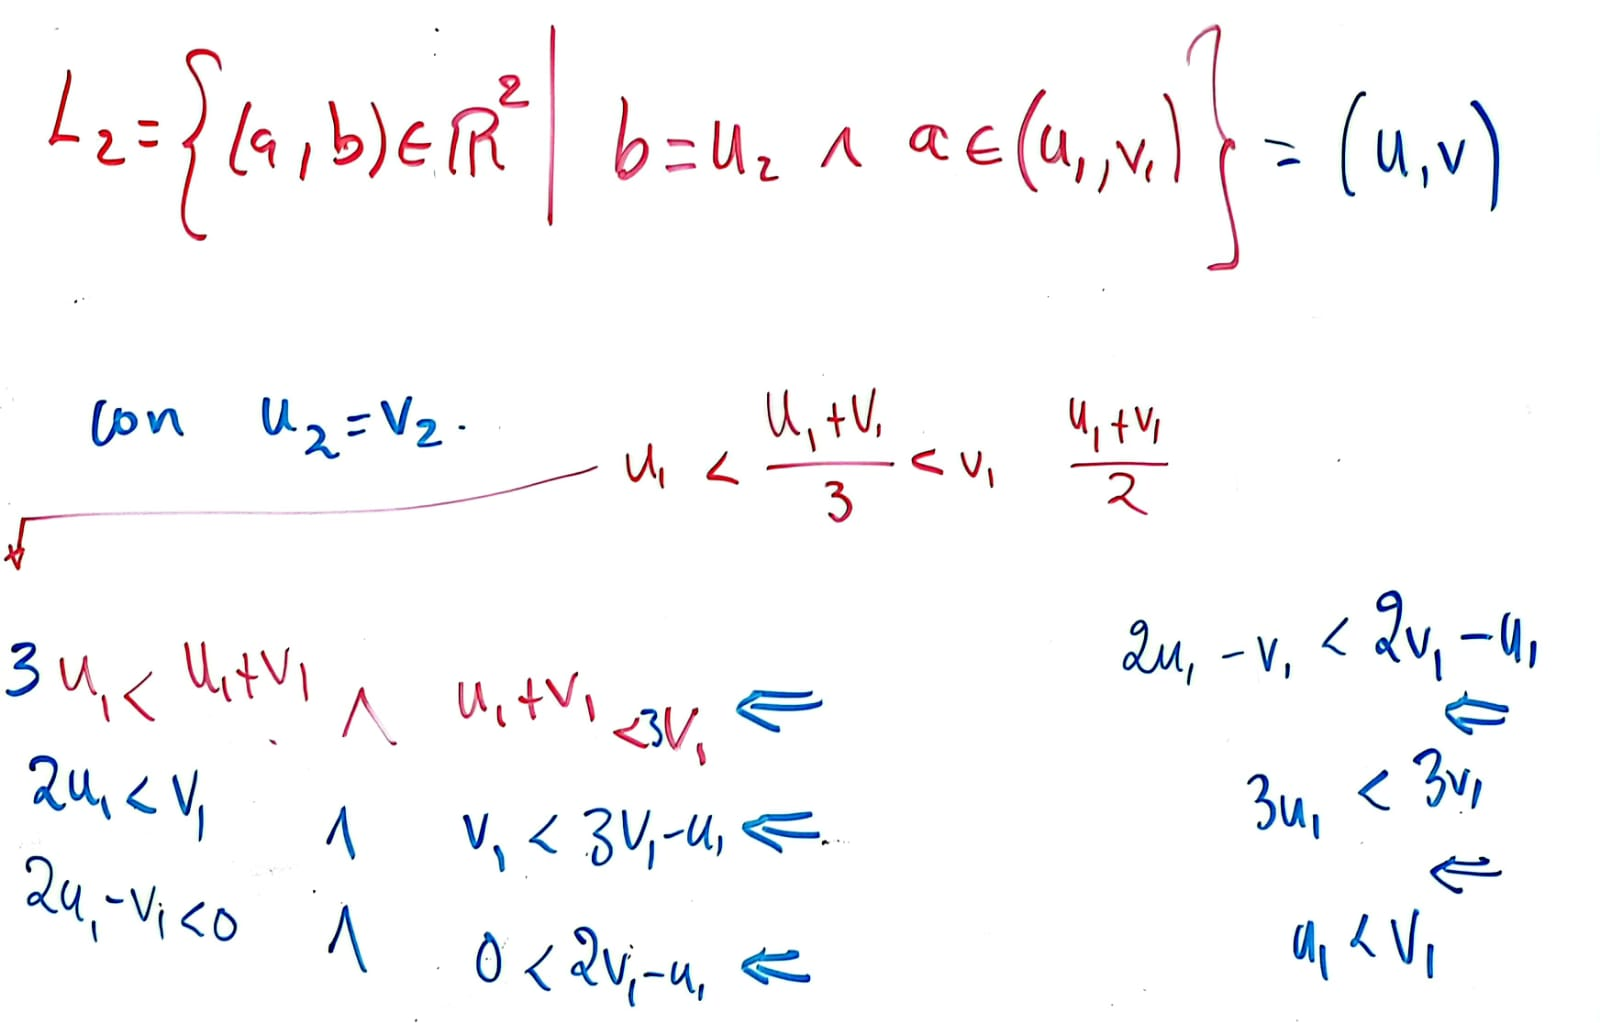 L₂ = { (a, b) ∈ ℝ² | b = u₂ ∧ a ∈ (u₁, v₁) } = (u, v)
con u₂ = v₂.
u₁ < (u₁ + v₁)/3 < v₁    (u₁ + v₁)/2
3u₁ < u₁ + v₁ ∧ u₁ + v₁ < 3v₁ ⇐
2u₁ < v₁ ∧ v₁ < 3v₁ - u₁ ⇐
2u₁ - v₁ < 0 ∧ 0 < 2v₁ - u₁ ⇐
2u₁ - v₁ < 2v₁ - u₁
⇐
3u₁ < 3v₁
⇐
u₁ < v₁